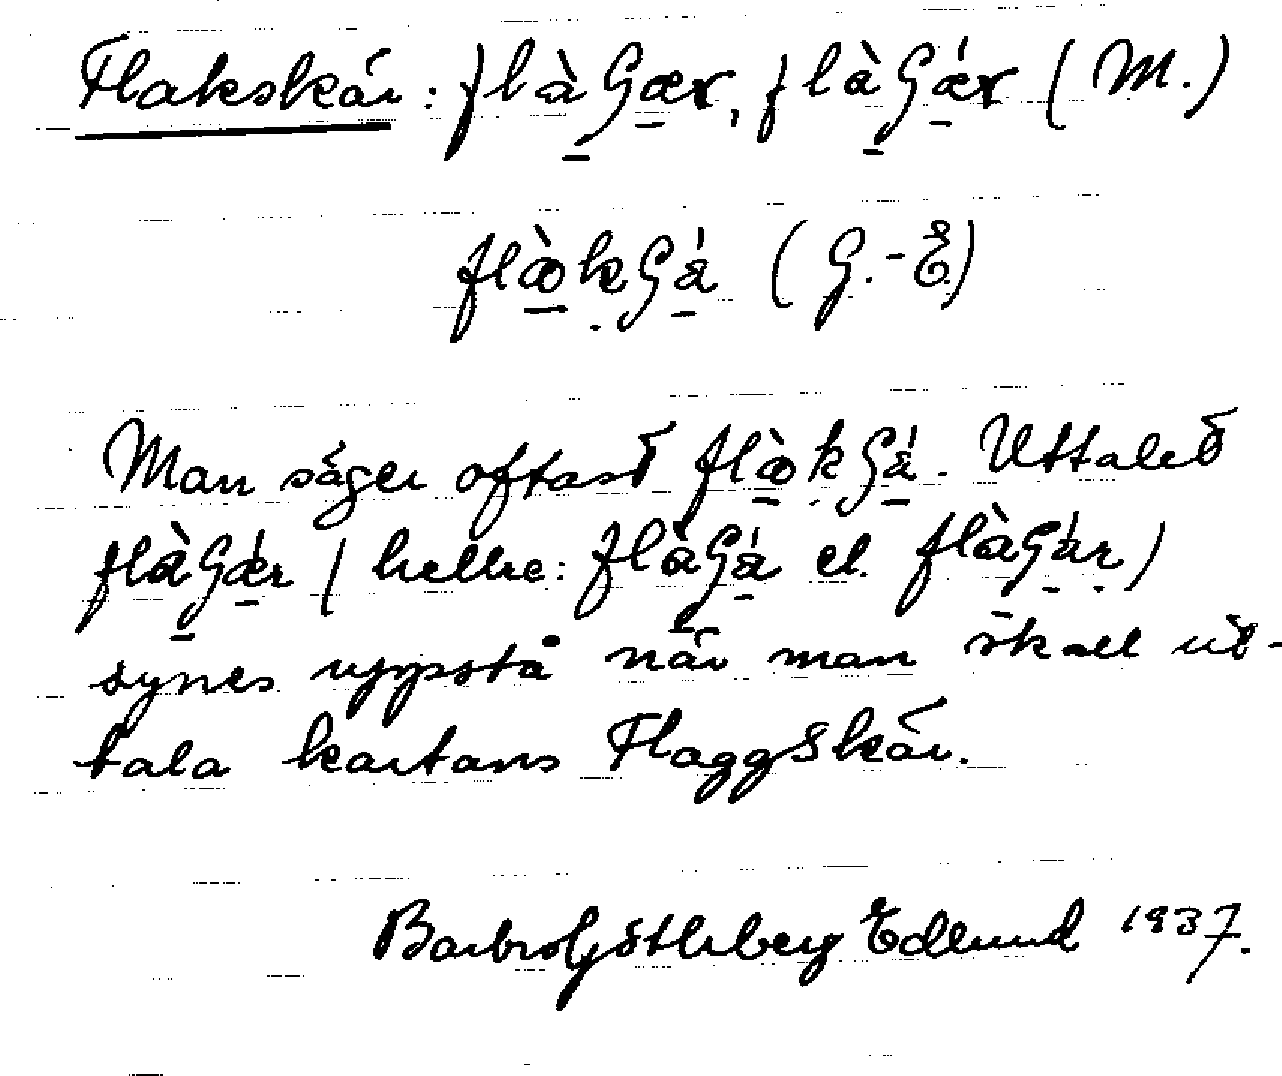 Flakskär: flàGær, flàGǽr (M.)
flàkGá (G.-E)
Man säger oftast flàkGá. Uttalet
flàGǽr (heller: flàGá el. flàGár)
synes uppstå när man skall ut-
tala kartans Flaggskär.
Barbro Göthberg Edlund 1937.